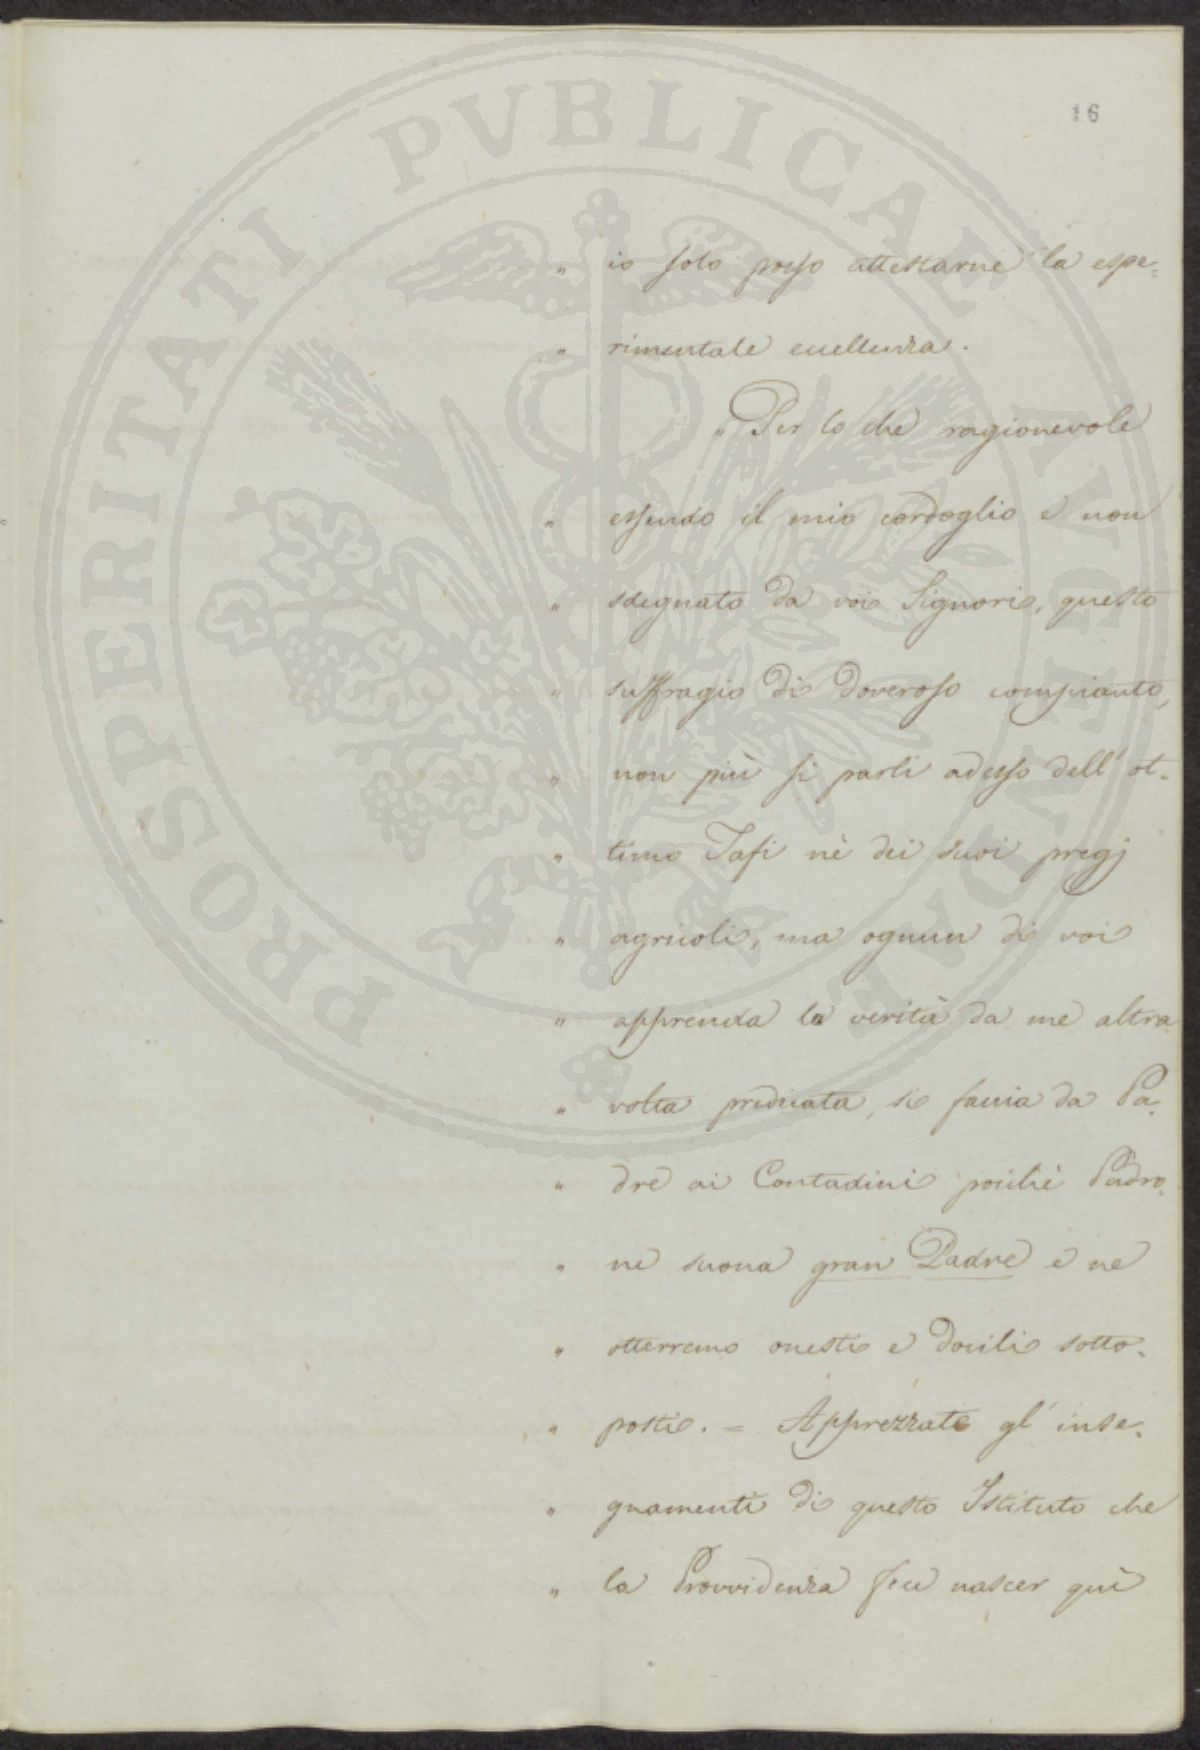 16
PROSPERITATI PVBLICAE AVGENDAE
„ io solo posso attestarne la espe=
„ rimentale eccellenza.
„ Per lo che ragionevole
„ essendo il mio cordoglio e non
„ sdegnato da voi Signori, questo
„ suffragio di doveroso compianto,
„ non più si parli adesso dell'ot=
„ timo Tafi nè dei suoi pregj
„ agricoli, ma ognun di voi
„ apprenda la verità da me altra
„ volta predicata, si faccia da Pa=
„ dre ai Contadini poichè Padro=
„ ne suona gran Padre e ne
„ otterremo onesti e docili sotto=
„ posti. = Apprezzate gl'inse=
„ gnamenti di questo Istituto che
„ la Provvidenza fece nascer quì